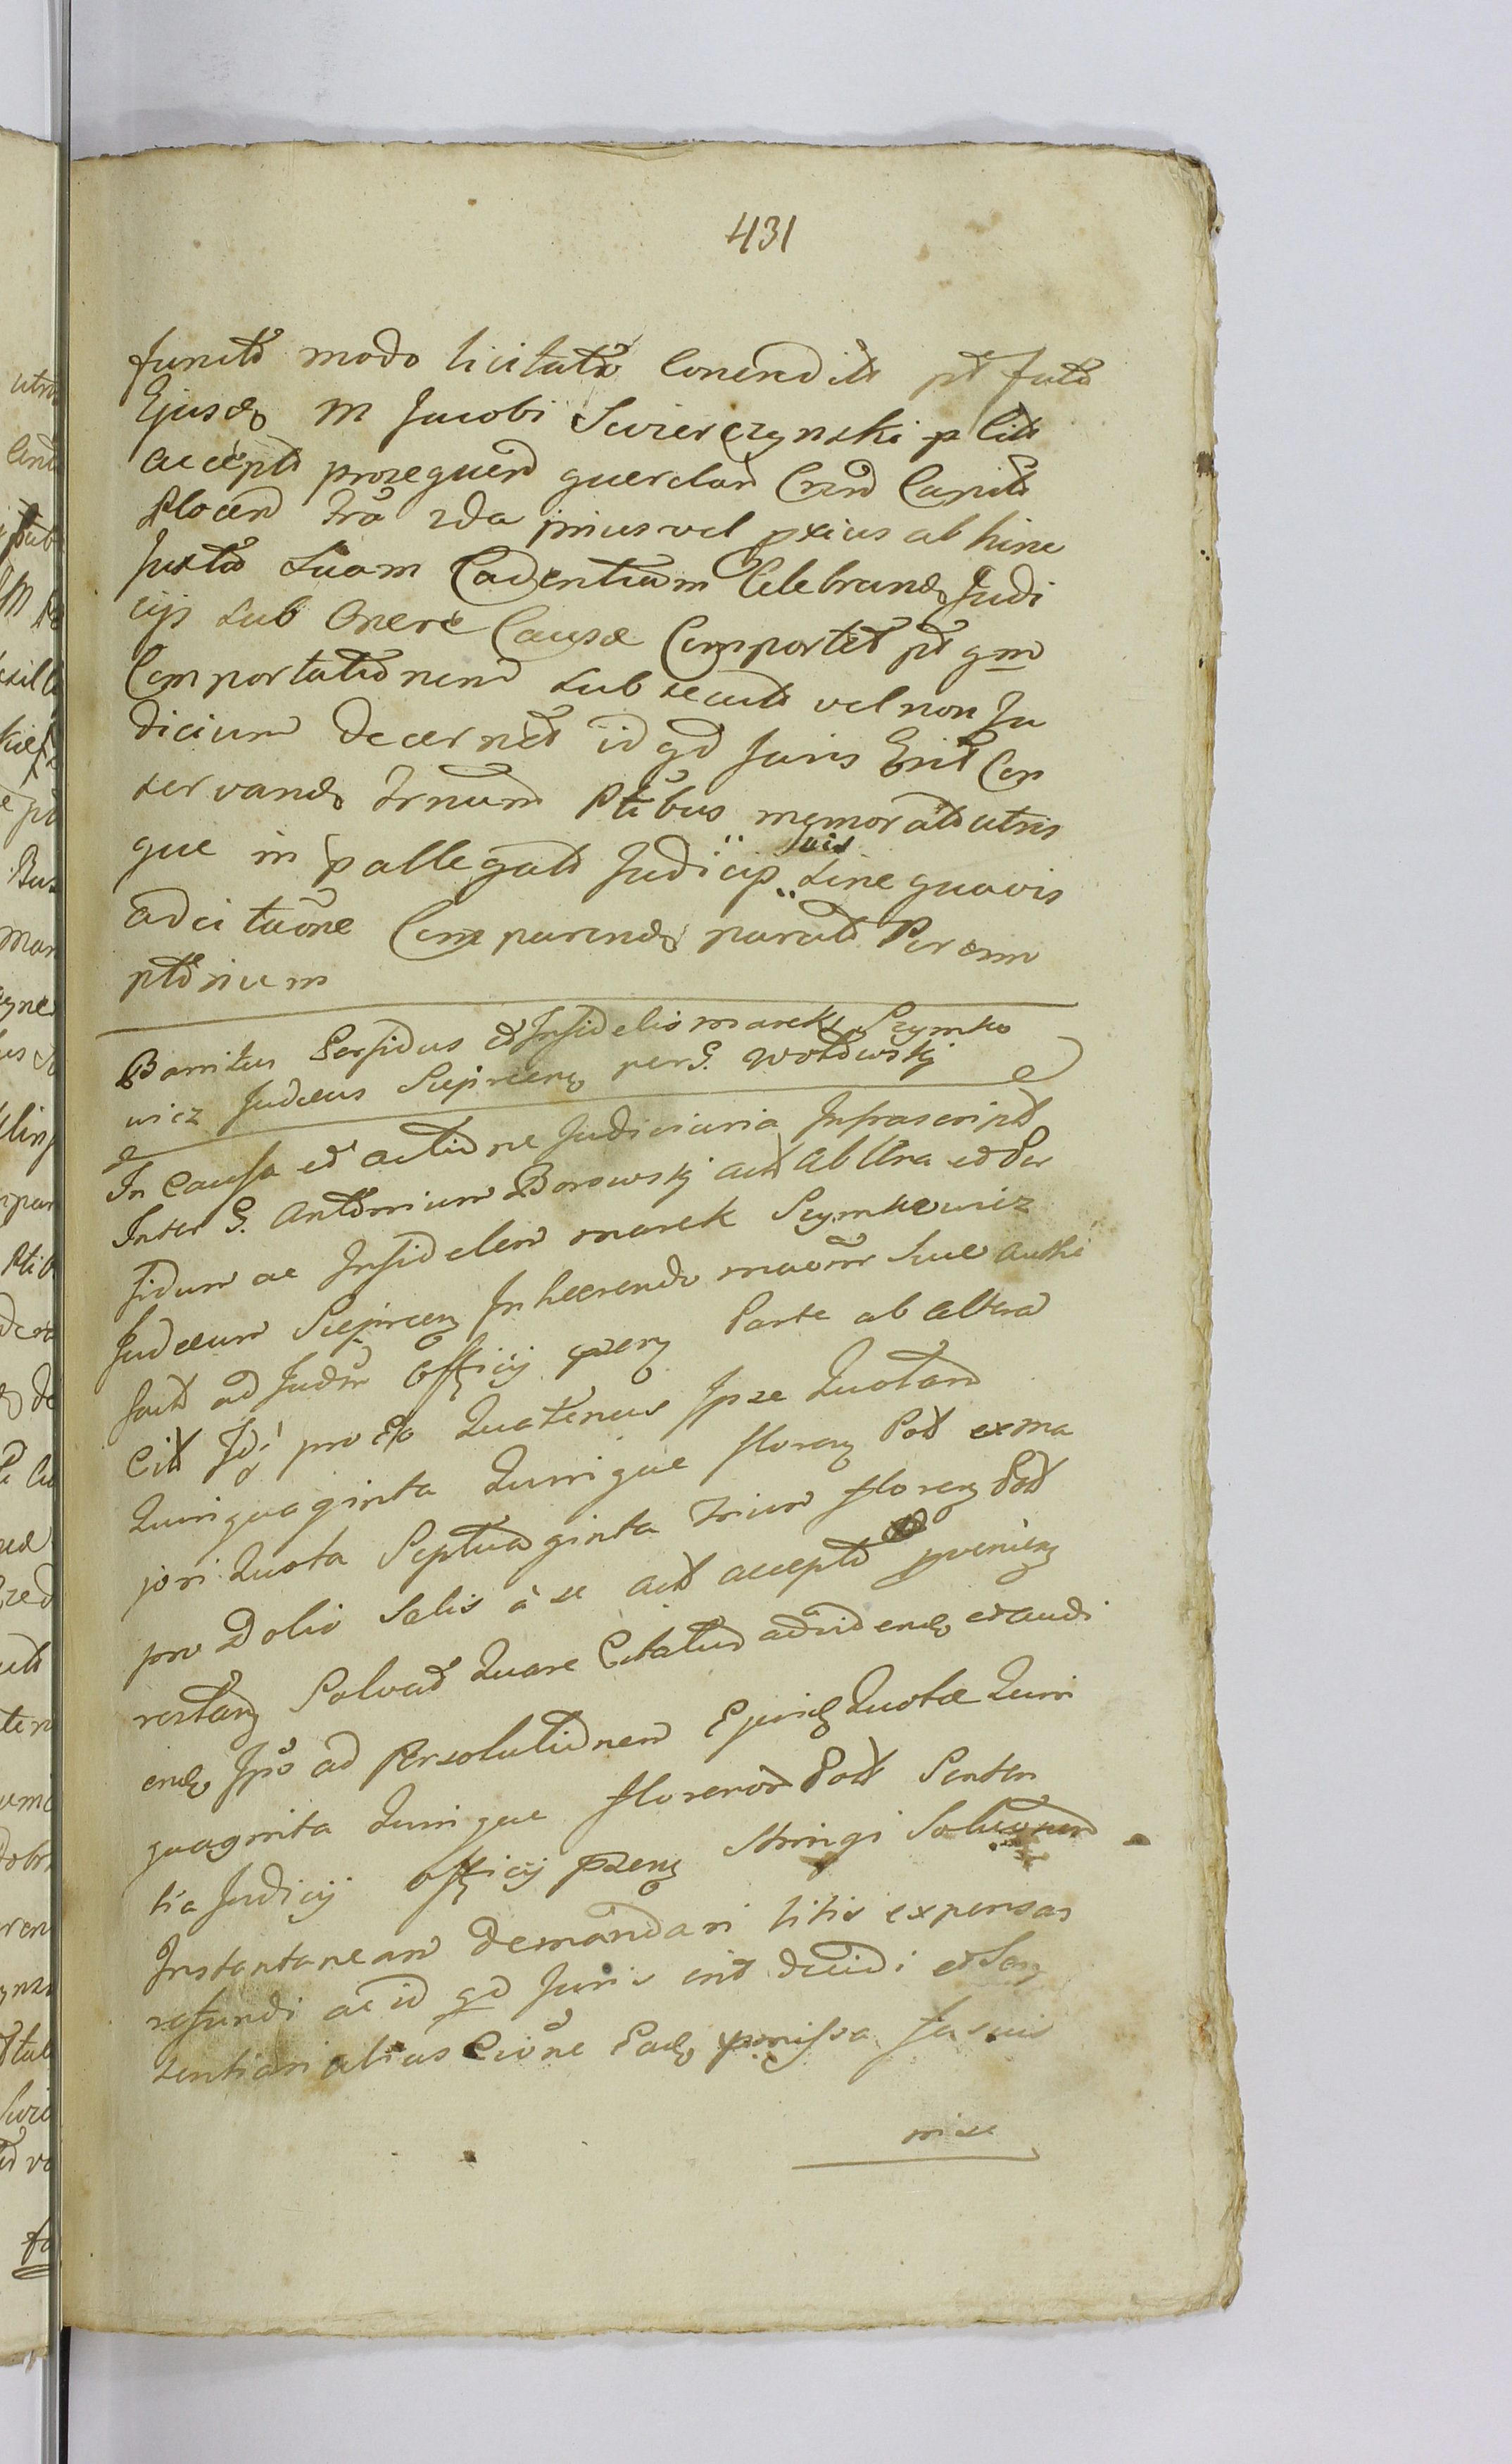 431
functo modo licitato Conendito pt facto
Ejusdo M Jacobi Swierczynski p Cito
accepto prosequend querelam Crnd Capito
Plocen Fra 2da prius vel pxius ab hinc
Juxta Suam Cadentiam Celebrando Judi
cijs sub onere Causæ Comportet pt qm
Comportationem subsecuto vel non Ju
dicium decernet id qd Juris Erit Con
servando Trnum Ptibus memorato utris
que in pallegato Judicijs suis sine quavis
adcitaone Comparendo parato Peremp
ptorium
Bannitus Perfidus et Infidelis marek Szymko
wicz Judæus Siepricens per G. Wołowskj
In Causa et actione Judiciaria Infrascript
Inter G. Antonium Borowskj act Ab Una et Per
fidum ac Infidelem marek Szymkowicz
Judæum Sieprcens Inhærendo maom suæ authe
sut ad Judm officij pzens Parte ab altera
Cit Idi pro Eo Quatenus Ipse Quotam
Quinquaginta Quinque florens Pol ex ma
jori Quota Septuaginta trium florens Pol
pro Dolio Salis à se act accepto pveniens
restans Solvat Quare Citatus ad videndo et audi
endo Ipso ad Persolutionem Ejusdo Quotæ Quin
quaginta Quinque florenor Pol Senten
tia Judicij officij pzens Stringi Soluonem
Instantaneam demandari litis expensas
refundi ac id qd Juris erit decidi et Sen
tentiari alias Cione Eado pmissa fusius